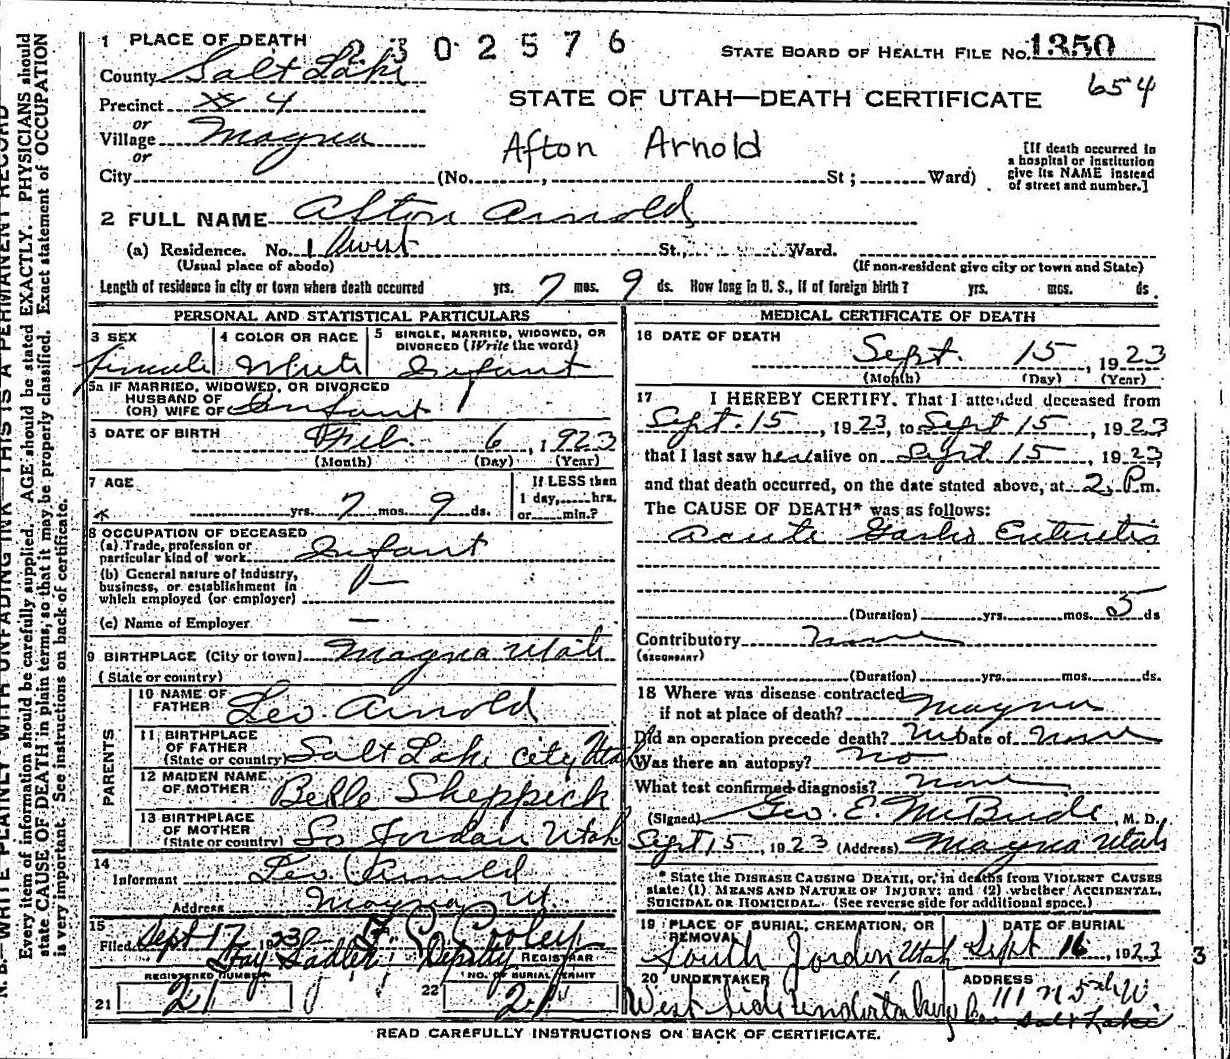 1 PLACE OF DEATH
2302576
STATE BOARD OF HEALTH FILE No. 1350
654
County Salt Lake
Precinct 4
or
Village Magna
or
City (No. , St ; Ward)
STATE OF UTAH—DEATH CERTIFICATE
Afton Arnold
[If death occurred in
a hospital or institution
give its NAME instead
of street and number.]
2 FULL NAME Afton Arnold
(a) Residence. No. 1 St., Ward.
(Usual place of abode) (If non-resident give city or town and State)
Length of residence in city or town where death occurred yrs. 7 mos. 9 ds. How long in U. S., if of foreign birth? yrs. mos. ds.
PERSONAL AND STATISTICAL PARTICULARS
3 SEX
Female
4 COLOR OR RACE
White
5 SINGLE, MARRIED, WIDOWED, OR
DIVORCED (Write the word)
Infant
5a IF MARRIED, WIDOWED, OR DIVORCED
HUSBAND OF
(OR) WIFE OF Infant
6 DATE OF BIRTH Feb. 6, 1923
(Month) (Day) (Year)
7 AGE
yrs. 7 mos. 9 ds.
If LESS than
1 day, hrs.
or min.?
8 OCCUPATION OF DECEASED
(a) Trade, profession or
particular kind of work Infant
(b) General nature of industry,
business, or establishment in
which employed (or employer)
(c) Name of Employer —
9 BIRTHPLACE (City or town) Magna Utah
(State or country)
PARENTS
10 NAME OF
FATHER Leo Arnold
11 BIRTHPLACE
OF FATHER
(State or country) Salt Lake City Utah
12 MAIDEN NAME
OF MOTHER Belle Sheppick
13 BIRTHPLACE
OF MOTHER
(State or country) So Jordan Utah
14
Informant Leo Arnold
Address Magna Ut.
15
Filed Sept 17 1923 Cooley
Fay Sadler, Deputy REGISTRAR
REGISTERED NUMBER
21 21
NO. OF BURIAL PERMIT
22 21
MEDICAL CERTIFICATE OF DEATH
16 DATE OF DEATH
Sept. 15, 1923
(Month) (Day) (Year)
17 I HEREBY CERTIFY. That I attended deceased from
Sept. 15, 1923, to Sept 15, 1923
that I last saw her alive on Sept 15, 1923,
and that death occurred, on the date stated above, at 2 P.m.
The CAUSE OF DEATH* was as follows:
Acute Gastro Enteritis
(Duration) yrs. mos. 5 ds
Contributory None
(SECONDARY)
(Duration) yrs. mos. ds.
18 Where was disease contracted
if not at place of death? Magna
Did an operation precede death? No Date of None
Was there an autopsy? No
What test confirmed diagnosis? None
(Signed) Geo. E. McBride, M. D.
Sept 15, 1923 (Address) Magna Utah
* State the DISEASE CAUSING DEATH, or, in deaths from VIOLENT CAUSES
state (1) MEANS AND NATURE OF INJURY; and (2) whether ACCIDENTAL,
SUICIDAL OR HOMICIDAL. (See reverse side for additional space.)
19 PLACE OF BURIAL, CREMATION, OR
REMOVAL
South Jordon Utah
DATE OF BURIAL
Sept 16, 1923
20 UNDERTAKER
West Side Undertaking Co
ADDRESS
111 N 5th W.
Salt Lake
3
READ CAREFULLY INSTRUCTIONS ON BACK OF CERTIFICATE.
N. B.—WRITE PLAINLY WITH UNFADING INK—THIS IS A PERMANENT RECORD
Every item of information should be carefully supplied. AGE should be stated EXACTLY. PHYSICIANS should
state CAUSE OF DEATH in plain terms, so that it may be properly classified. Exact statement of OCCUPATION
is very important. See instructions on back of certificate.